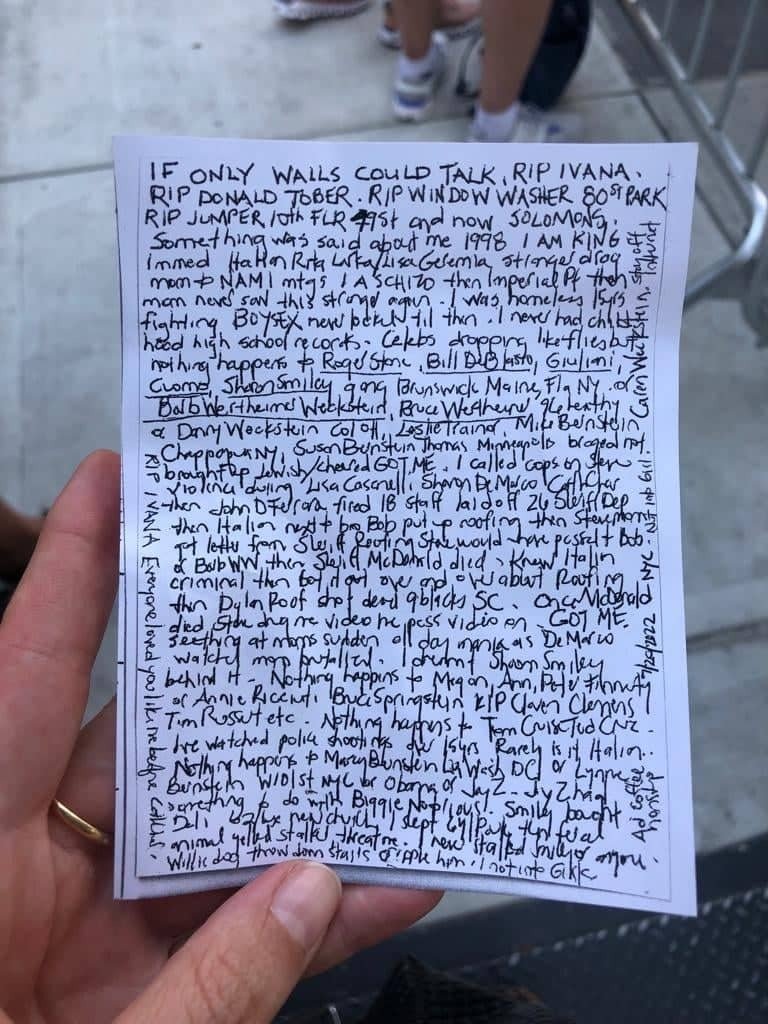 IF ONLY WALLS COULD TALK. RIP IVANA.
RIP DONALD TOBER. RIP WINDOW WASHER 80ST PARK
RIP JUMPER 10th FLR 49st and now SOLOMONS.
Something was said about me 1998 I AM KING
immed Italian Rita Lisa Geremia stranger drag
mom to NAMI mtgs I A SCHIZO then Imperial Pt then
mom never saw this strange again. I was homeless 15yrs
fighting BOYSEX never been til then. I never had child
hood high school records. Celebs dropping like flies but
nothing happens to Roger Stone, Bill DeBlasio, Giuliani,
Cuomo, Sharon Smiley gang Brunswick Maine, Fla NY or
Barb Wertheimer Weckstein, Bruce Wertheimer 96 healthy
or Danny Weckstein Col off, Leslie Trainor, Mike Bernstein
Chappaqua NY, Susan Bernstein Thomas Minneapolis braged not
brought up Jewish/cheered GOT ME. I called cops on Steve
Violence during Lisa Casanell, Sharon DeMarco
then John D fired 18 staff laid off 26 Sheriff Dep
then Italian next to Bob put up roofing then Steve moms
got letter from Sheriff Roofing Steve would have passed to Bob.
or Barb WW then Sheriff McDonald died. Knew Italian
criminal then boy it got over and over about Roofing
then Dylan Roof shot dead 9 blacks SC. Once McDonald
died Steve drug me video he pess video on GOT ME
seething at moms sudden all day mania as DeMarco
watched mom brutalized. I dreamt Sharon Smiley
behind it. Nothing happens to Megan, Ann, Peter Finnerty
or Annie Ricenti Bruce Springstein RIP Claren Clemens
Tim Russert etc. Nothing happens to Tom Cruis Ted Cruz.
Ive watched police shootings over 15yrs Rarely is it Italian.
Nothing happens to Marcy Burnstein Wash DC or Lynne
Bernstein W101st NYC or Obama or Jay Z. Jay Z had
something to do with Biggie Notorious. Smiley bought
Deli new church sept 64 Park then feral
animal yelled stalker theatre. I never stalked Smiley or anyone.
Willie dog throw down stairs cripple him. I not into
RIP IVANA Everyone loved you like me before
Caren Weckstein, stay off internet
NYC Not into Girl.
7/20/2022
Ad Coffee